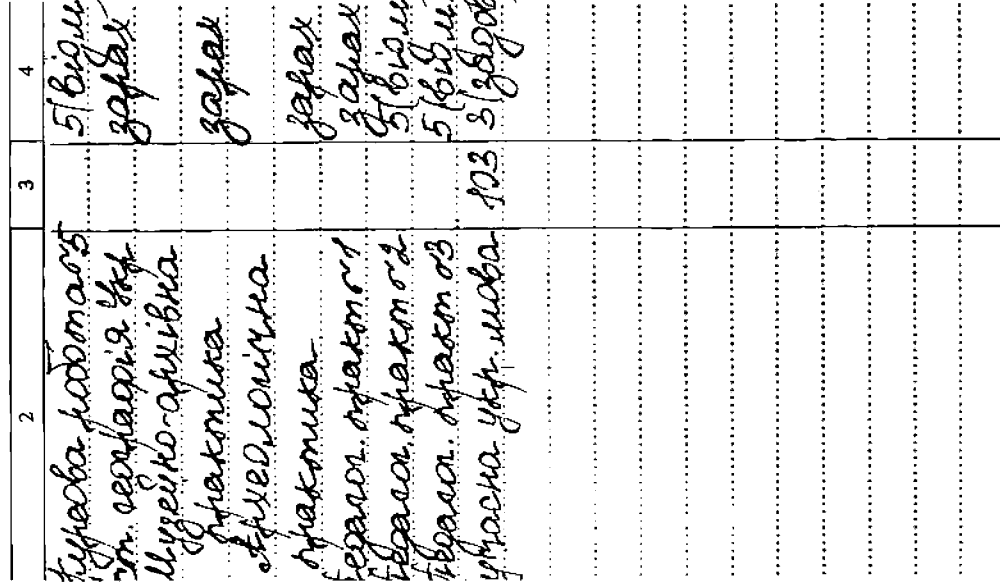 2 3 4
Курсова робота №5 5/відм
іст. географія Укр зарах
Музейно-архівна
практика зарах
Археологічна
практика зарах
Педагог. практ №1 зарах
Педагог. практ №2 5/відм
Педагог. практ №3 5/відм
учасна укр. мова 103 3/задов